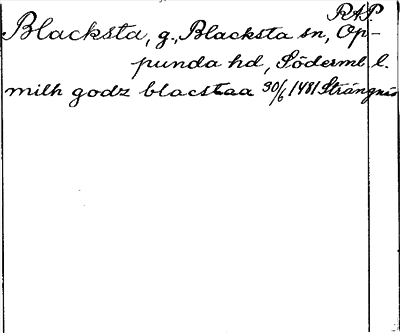 RAP.
Blacksta, g., Blacksta sn, Op-
punda hd, Söderml. l.
milh godz blacstaa 30/6 1481 Strängnäs